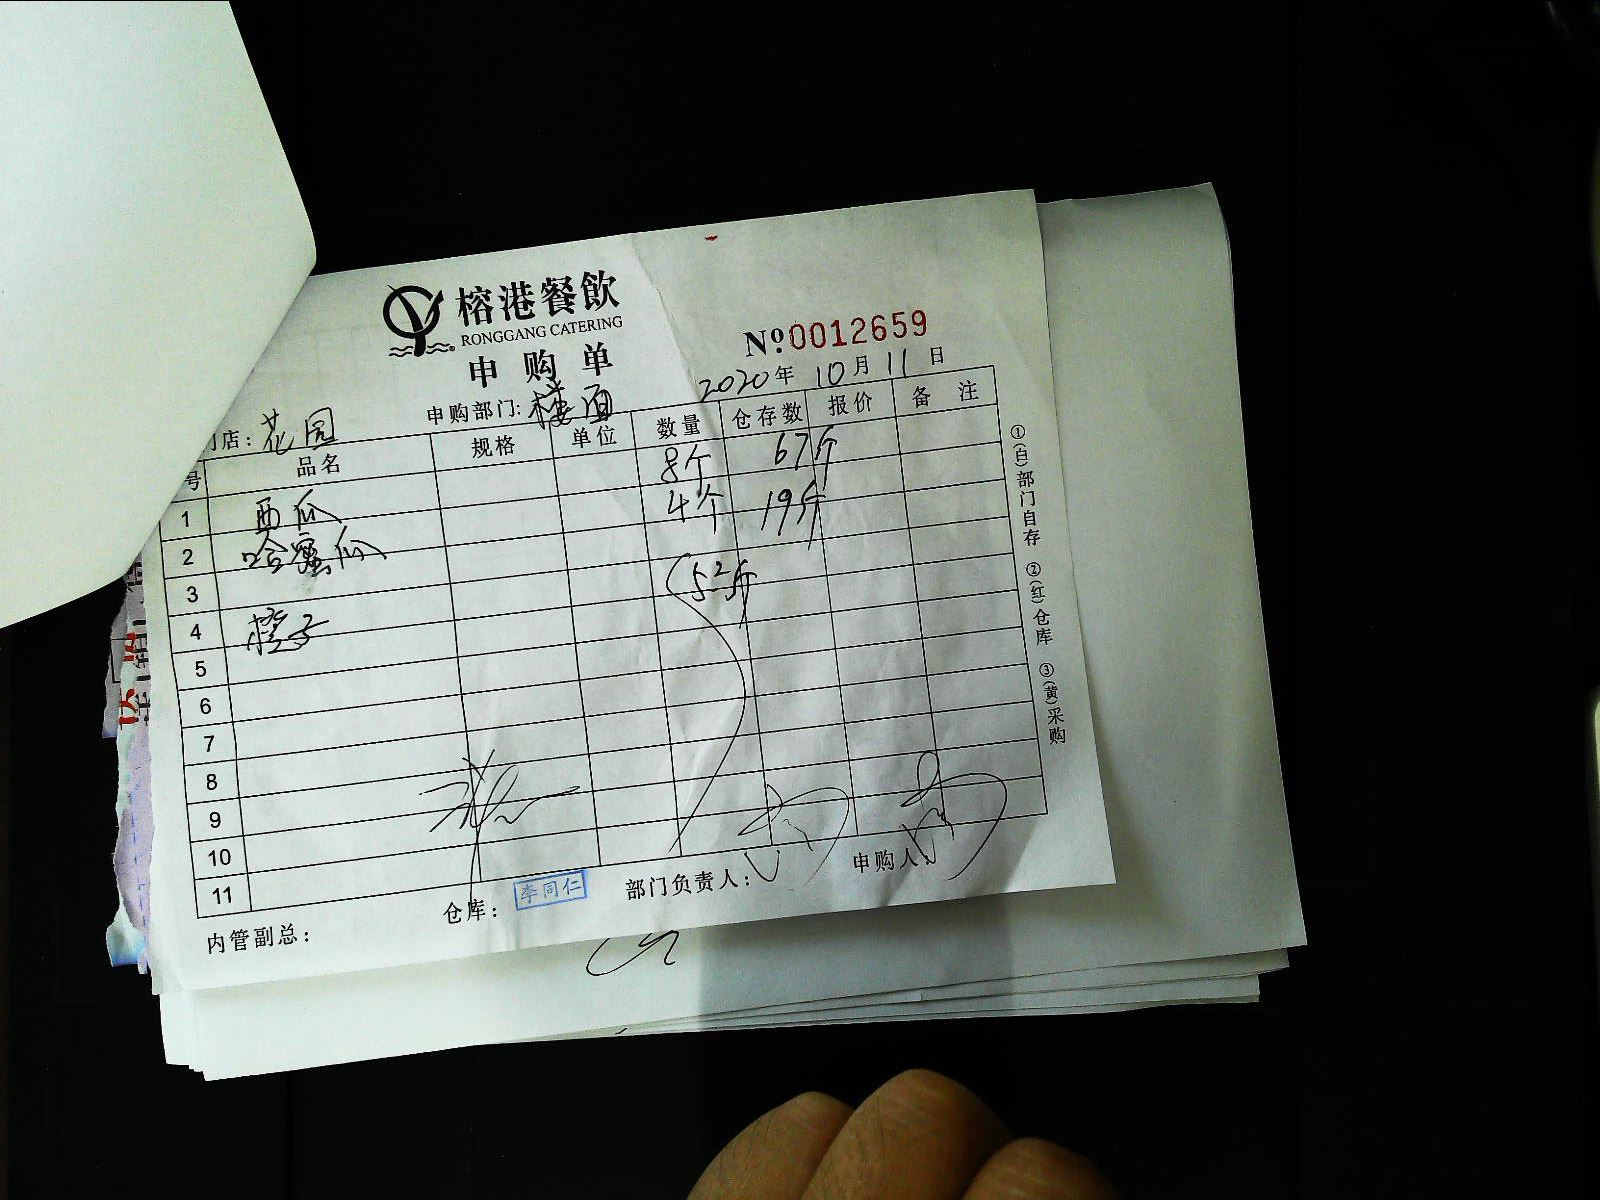 榕港餐飲
RONGGANG CATERING
申购单
№0012659
2020年10月11日
门店：花园 申购部门：楼面
号 品名 规格 单位 数量 仓存数 报价 备注
1 西瓜 8个 67斤
2 哈蜜瓜 4个 19斤
3
4 橙子 52斤
5
6
7
8
9
10
11
内管副总： 仓库：李同仁 部门负责人： 申购人：
①(白)部门自存 ②(红)仓库 ③(黄)采购